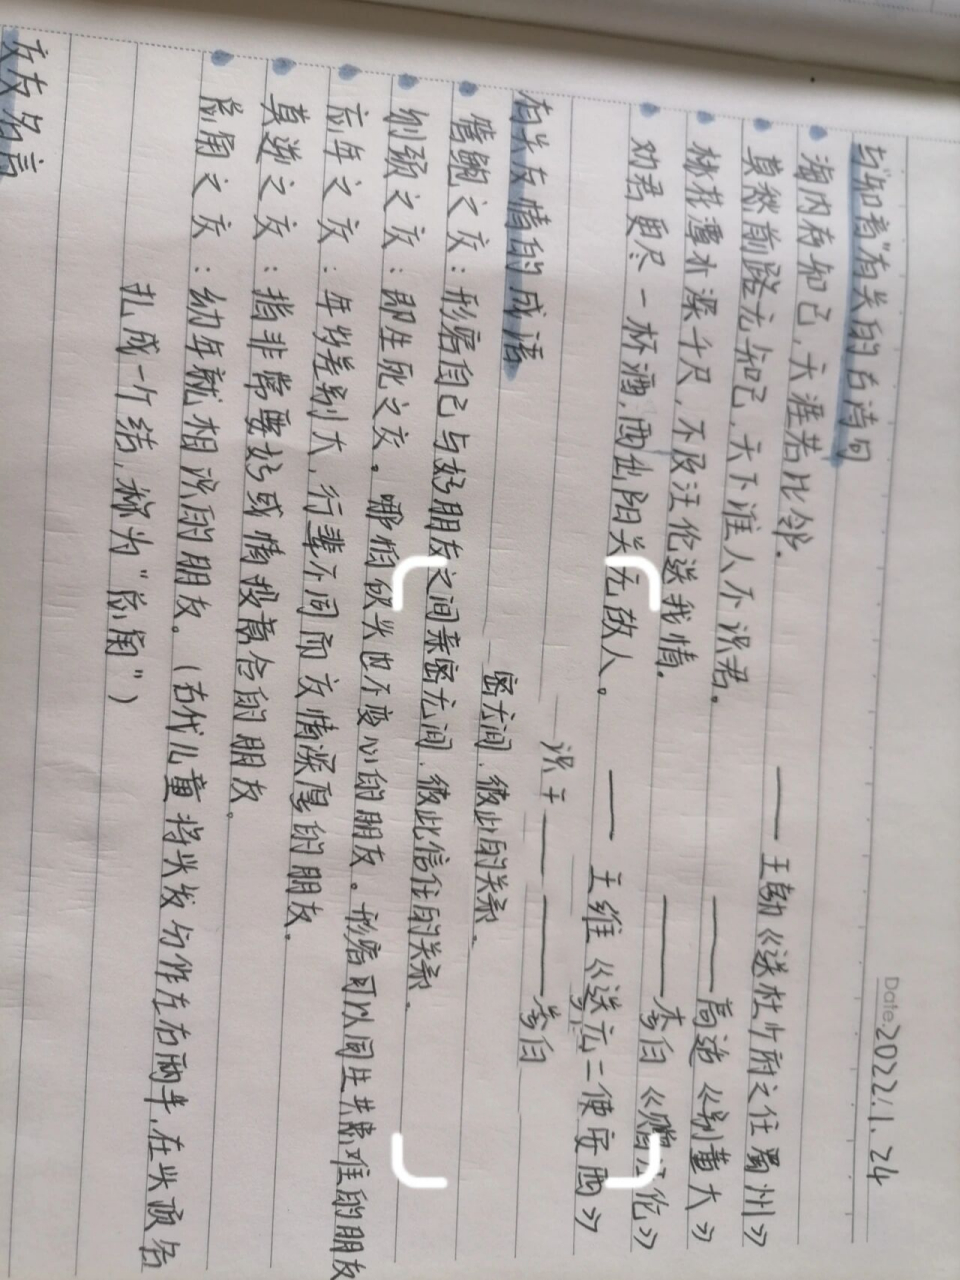 Date. 2022.1.24
与“知音”有关的古诗句
海内存知己,天涯若比邻. ——王勃《送杜少府之任蜀州》
莫愁前路无知己,天下谁人不识君。 ——高适《别董大》
桃花潭水深千尺,不及汪伦送我情. ——李白《赠汪伦》
劝君更尽一杯酒,西出阳关无故人。 ——王维《送元二使安西》
有关友情的成语
管鲍之交:形容自己与好朋友之间亲密无间,彼此信任的关系.
刎颈之交:即生死之交。哪怕砍头也不变心的朋友。形容可以同生共患难的朋友
忘年之交:年岁差别大,行辈不同而交情深厚的朋友.
莫逆之交:指非常要好或情投意合的朋友.
总角之交:幼年就相识的朋友。(古代儿童将头发分作左右两半,在头顶各
扎成一个结,称为“总角”)
交友名言